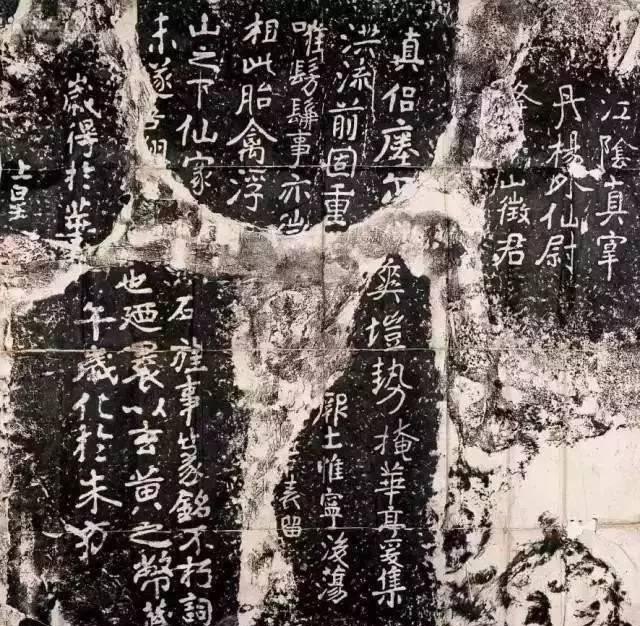 上皇
歲得於華
未遂吾翔
山之下仙家
相此胎禽浮
唯髣髴事亦微
洪流前固重
真侶瘞爾
徵君
丹楊外仙尉
江陰真宰
午歲化於朱方
也廼裹以玄黃之幣藏
石旌事篆銘不朽詞
表留
厥土惟寧後蕩
爽塏勢掩華亭爰集